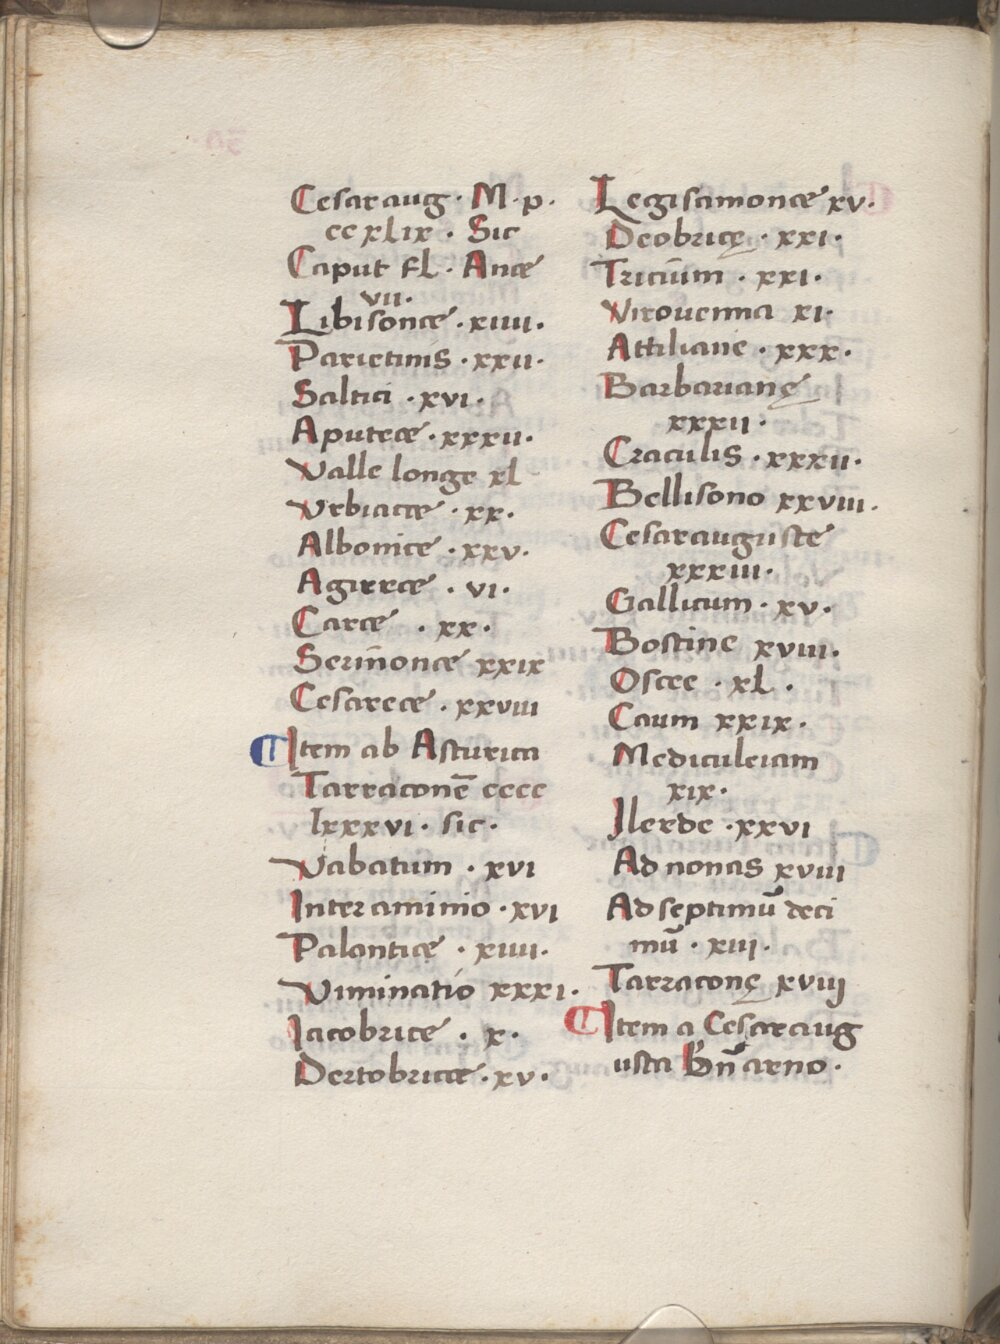 Cesaraug · M · p ·
ccxlix · Sic
Caput fl · Anæ
vii ·
Libisonæ · xiiii ·
Parietinis · xxii ·
Saltici · xvi ·
Aputeæ · xxxii ·
Valle longe xl
Vrbiacæ · xx ·
Albonicæ · xxv ·
Agireæ · vi ·
Caræ · xx ·
Serm̄onæ xxix
Cesareæ · xxviii
¶ Item ab Asturica
Tarraconē cccc
lxxxvi · sic ·
Vabatum · xvi
Interaminio · xvi
Palantiæ · xiiii ·
Viminatio xxxi ·
Iacobricæ · x ·
Dertobricæ · xv ·
Legisamonæ xv ·
Deobricę · xxi ·
Triciūm · xxi ·
Virouenna xi ·
Attiliane · xxx ·
Barbarianę
xxxii ·
Craculis · xxxii ·
Bellisono xxviii ·
Cesarauguste
xxxiii ·
Gallicum · xv ·
Bostine xviii ·
Oscæ · xl ·
Caum xxix ·
Mediculeiam
xix ·
Ilerde · xxvi
Ad nonas xviii
Ad septimū deci
mū · xiii ·
Tarraconę xviij
¶ Item a Cesareaug
usta Bn̄arno ·